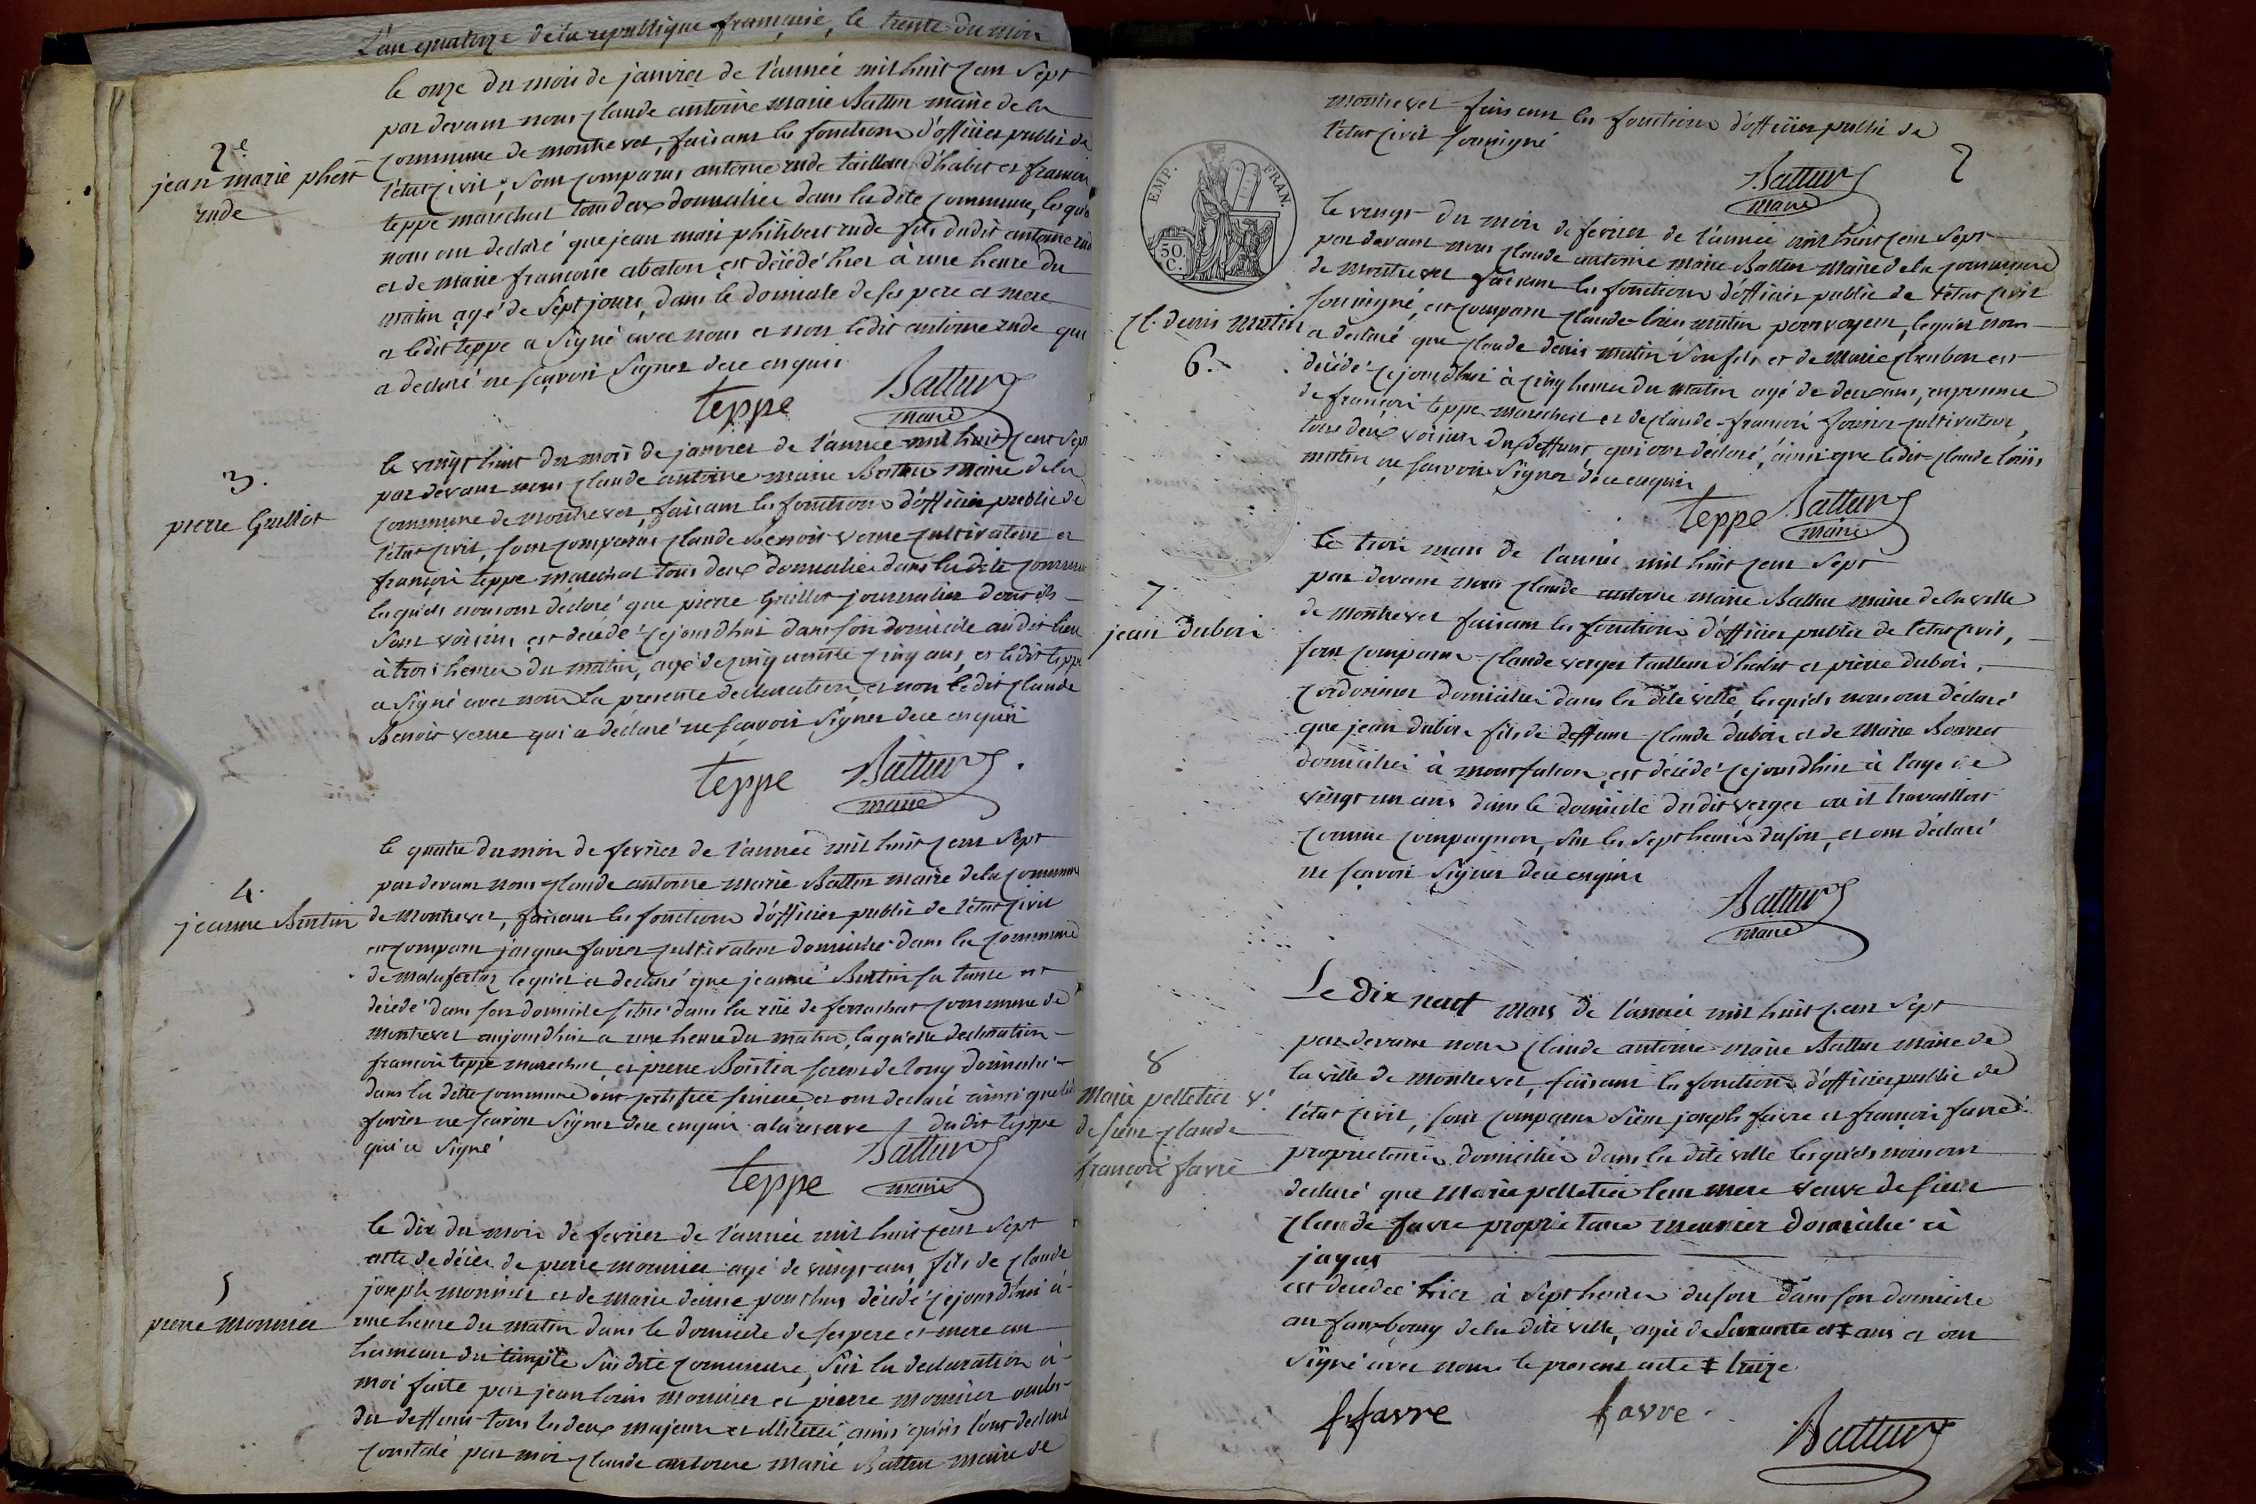 L'an quatorze de la republique française, le trente du mois
2e
jean marie phert
rude
le onze du mois de janvier de l'année mil huit cent sept
par devant nous claude antoine marie Battur maire de la
commune de montrevel, faisant les fonctions d'officier public de
l'état civil, sont comparus antoine rude tailleur d'habit et françois
teppe marechal tous deux domiciliés dans la dite commune, lesquels
nous ont declaré que jean marie philibert rude fils dudit antoine rude
et de marie françoise est décédé hier à une heure du
matin agé de sept jours, dans le domicile de ses pere et mere
et ledit teppe a signé avec nous et non ledit antoine rude qui
a declaré ne sçavoir signer de ce enquis
teppe Battur
maire
3.
pierre Guillot
le vingt huit du mois de janvier de l'année mil huit cent sept
par devant nous claude antoine marie Battur maire de la
commune de montrevel, faisant les fonctions d'officier public de
l'état civil, sont comparus claude Benoit verne cultivateur et
françois teppe marechal tous deux domiciliés dans la dite commune
lesquels nous ont déclaré que pierre Guillot journalier dont ils
sont voisins, est décédé cejourdhui dans son domicile audit lieu
à trois heures du matin, agé de cinquante cinq ans, et ledit teppe
a signé avec nous la presente declaration et non ledit claude
Benoit verne qui a déclaré ne sçavoir signer de ce enquis
teppe Battur
maire
4.
jeanne Burtin
le quatre du mois de fevrier de l'année mil huit cent sept
par devant nous claude antoine marie Battur maire de la commune
de montrevel, faisant les fonctions d'officier public de l'état civil
est comparu jacques favier cultivateur domicilié dans la commune
de malafretaz lequel a declaré que jeanne Burtin sa tante est
décédé dans son domicile situé dans la rüe de commune de
montrevel aujourdhui a une heure du matin, laquelle declaration
françois teppe marechal, et pierre scieur de long domiciliés
dans la dite commune ont certifiée sincere, et ont declaré ainsi que ledit
favier ne sçavoir signer de ce enquis a la reserve dudit teppe
qui a signé
teppe Battur
maire
5
pierre monnier
le dix du mois de fevrier de l'année mil huit cent sept
acte de décès de pierre monnier agé de vingt ans, fils de claude
joseph monnier et de marie denise décédé cejourdhui à
une heure du matin dans le domicile de ses pere et mere au
hameau du temple sus dite commune, sur la declaration à
moi faite par jean louis monnier et pierre monnier oncles
du deffunt tous les deux majeurs et illiterés, ainsi qu'ils l'ont declaré
constaté par moi claude antoine marie Battur maire de
montrevel faisant les fonctions d'officier public de
l'état civil soussigné
Battur
maire
2
EMP. FRAN.
50
C.
cl. denis mutin
6.
le vingt du mois de fevrier de l'année mil huit cent sept
par devant nous claude antoine marie Battur maire de la commune
de montrevel faisant les fonctions d'officier public de l'état civil
soussigné, est comparu claude louis mutin lequel nous
a declaré que claude denis mutin son fils et de marie est
décédé cejourdhui à cinq heures du matin agé de deux ans, en presence
de françois teppe marechal et de claude françois cultivateur,
tous deux voisins du deffunt qui ont déclaré, ainsi que ledit claude louis
mutin ne sçavoir signer de ce enquis
teppe Battur
maire
7
jean dubois
le trois mars de l'année mil huit cent sept
par devant nous claude antoine marie Battur maire de la ville
de montrevel faisant les fonctions d'officier public de l'état civil,
sont comparus claude verger tailleur d'habit et pierre dubois
cordonnier domiciliés dans la dite ville, lesquels nous ont déclaré
que jean dubois fils de deffunt claude dubois et de marie
domiciliés à montfalcon, est décédé cejourdhui à l'age de
vingt un ans dans le domicile dudit verger où il travailloit
comme compagnon, sur les sept heures du soir, et ont déclaré
ne sçavoir signer de ce enquis
Battur
maire
8
Marie pelletier v.e
de sieur claude
françois favre
Le dix neuf mars de l'année mil huit cent sept
par devant nous claude antoine marie Battur maire de
la ville de montrevel, faisant les fonctions d'officier public de
l'état civil, sont comparus sieur joseph favre et françois favre
proprietaires domiciliés dans la dite ville lesquels nous ont
declaré que Marie pelletier leur mere veuve de sieur
claude favre proprietaire meunier domicilié à
jayat
est decedée hier à sept heures du soir dans son domicile
au faux-bourg de la dite ville, agée de soixante et ‡ ans et ont
signé avec nous le present acte ‡ treize
f favre favre
Battur